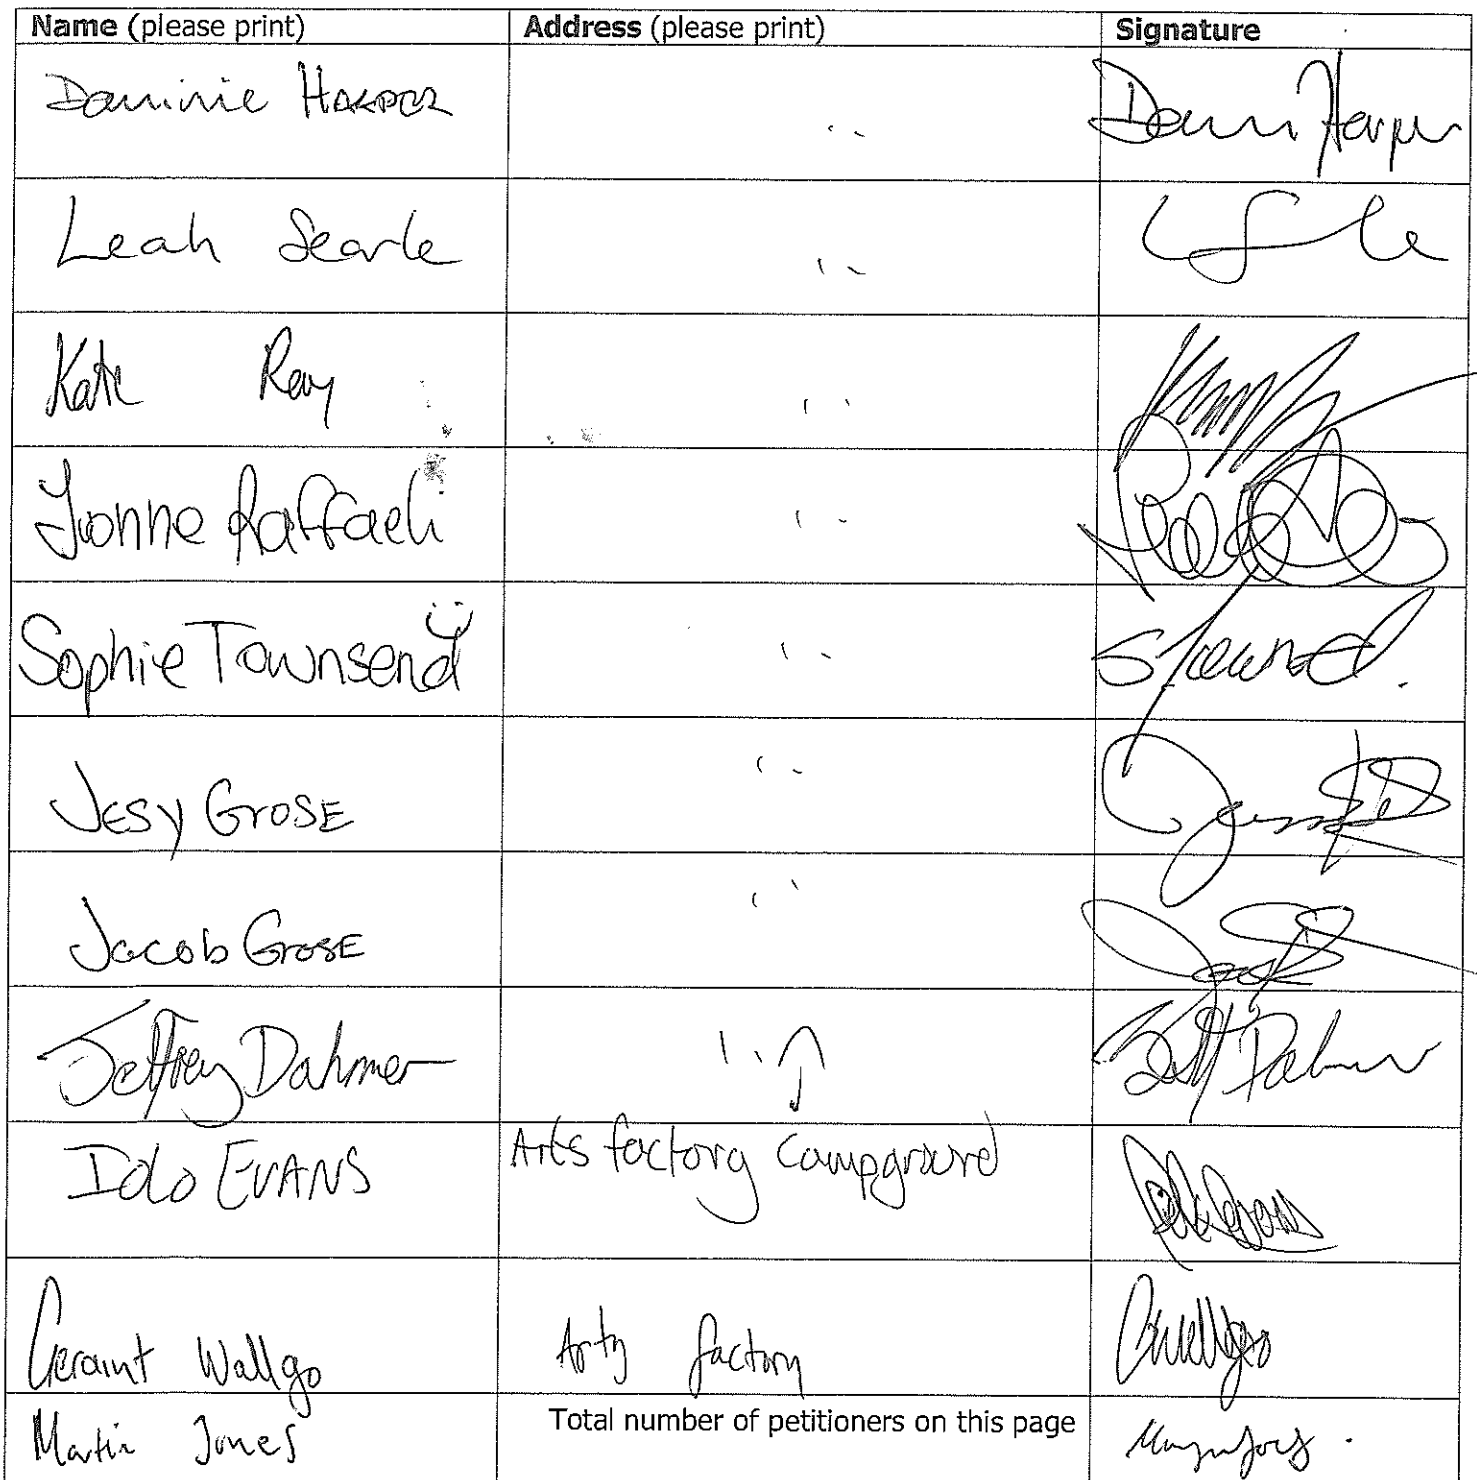 Name (please print) Address (please print) Signature
Dominic HARPER ،، Domi Harper
Leah Searle ،،
Kate Ray ،،
Yvonne Raffaeli ،،
Sophie Townsend ،، STownsend.
JESY GrOSE ،،
Jacob GrOSE ،،
Jeffrey Dahmer ،، Jeff Dahmer
IOLO EVANS Arts factory campground
Geraint Wallgo Arty factory GWallgo
Martin Jones Total number of petitioners on this page